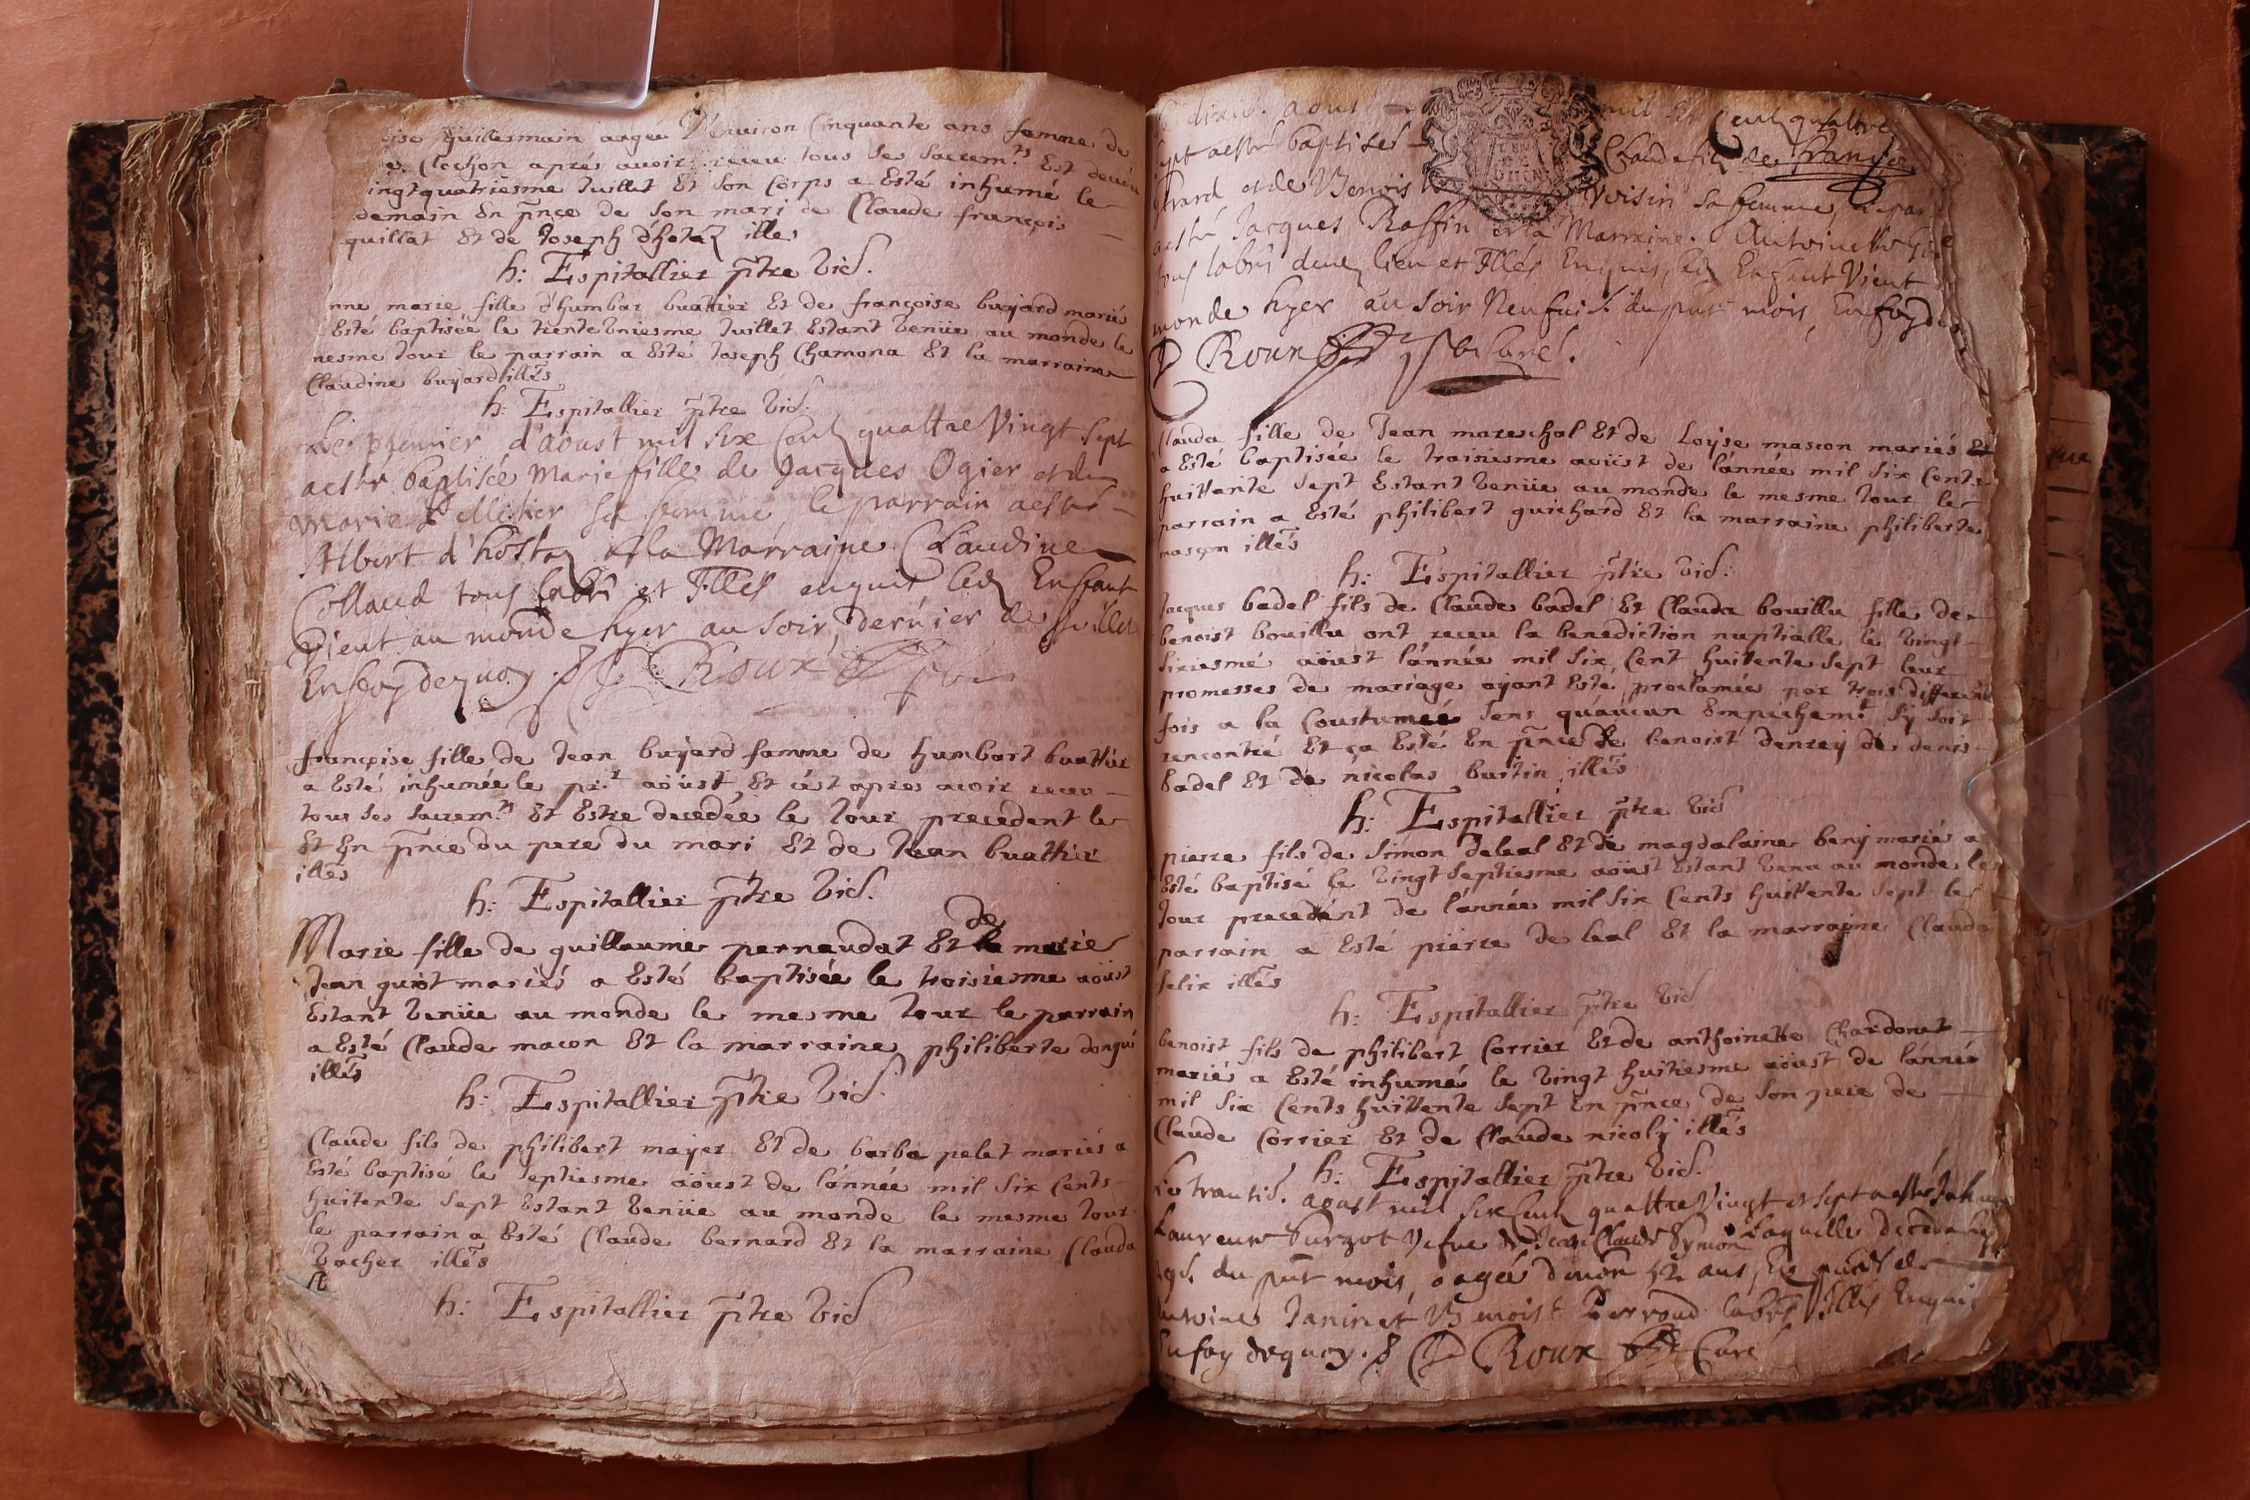 guillermain aagée d'environ Cinquante ans famme de
Clochon aprés avoir receu tous ses Sacrem.ts Est
ingtquatriesme Juillet Et son Corps a Esté inhumé le
demain En pñce de son mari de Claude françois
quillat Et de Joseph d'hotéz illes
h: Espitallier p̃tre vic.
nne marie fille d'humbar buattier Et de françoise buyard mariés
Esté baptisée le trente Uniesme Juillet Estant venüe au monde le
mesme Jour le parrain a Esté Joseph Chamona Et la marraine
Claudine buyard illẽs
h: Espitallier p̃tre vic.
Le premier d'aoust mil six Centz quattre Vingt sept
aesté baptisée Marie fille de Jacques Ogier et de
Marie Pelletier sa femme, le parrain aesté
Albert d'hostez et la Marraine Claudine
Collaud tous labr̃s et Illés enquis led Enffant
Vient au monde hyer au soir dernier de Juillet
En foy de quoy. Roux
françoise fille de Jean buyard famme de humbart buattier
a Esté inhumée le pr.r aoüst, Et cést apres avoir receu
tous ses sacrem.ts Et Estre decedée le Jour precedent le
Et En pñce du pere du mari Et de Jean buattier
illẽs
h: Espitallier p̃tre vic.
Marie fille de guillaume pernaudat Et de la marie
Jean guiot mariés a Esté baptisée le troisiesme aoüst
Estant venüe au monde le mesme Jour le parrain
a Esté Claude macon Et la marraine philiberte dongui
illẽs
h: Espitallier p̃tre vic.
Claude fils de philibert mayer Et de barba pelet mariés a
Esté baptisé le septiesme aoüst de l'année mil six Cents
huitente sept Estant venüe au monde le mesme Jour
le parrain a Esté Claude bernard Et la marraine Clauda
vacher illẽs
h: Espitallier p̃tre vic
aoust mil six Centz quattre
sept aesté baptisé Claude fils de François
et de Benoiste Voisin sa femme, le par
aesté Jacques Raffin et la Marraine Antoinette
tous labr̃s dud lieu et Illés Enquis, led Enfant Vient
monde hyer au soir Neufvi. du pnt mois, En foy de
Roux Curé.
Clauda fille de Jean mareschal Et de Loyse mascon mariés
a Esté baptisée le troisiesme aoüst de l'année mil six Cents
huittante sept Estant venüe au monde le mesme Jour le
parrain a Esté philibert guichard Et la marraine philiberte
mascon illẽs
h: Espitallier p̃tre vic:
Jacques badel fils de Claude badel Et Clauda bouillu fille de
benoist bouillu ont receu la benediction nuptialle le vingt
sixiesme aoüst l'année mil six Cent huitente sept leur
promesses de mariage ayant Esté proclamée par trois differente
fois a la Coustumeé sens quaucun Empechem.t s'y soit
rencontré Et ça Esté En pñce de benoist denrey de denis
badel Et de nicolas buttin illẽs
h: Espitallier p̃tre vic
pierre fils de Simon deleal Et de magdalaine beny mariés a
Esté baptisé le vingt septiesme aoüst Estant venu au monde le
Jour precedént de l'année mil six Cents huittente sept le
parrain a Esté pierre de leal Et la marraine Clauda
felix illẽs
h: Espitallier p̃tre vic
benoist fils de philibert Corrier Et de anthoinette Chardonet
mariés a Esté inhumé le vingt huitiesme aoüst de l'année
mil six Cents huittente sept En pñce de son pere de
Claude Corrier Et de Claude nicoly illẽs
h: Espitallier p̃tre vic.
aoust mil six Centz quattre Vingt et sept aesté
Laurence Vefve de Jean Claude Symon Laquelle deceda
du pnt mois, agée
Janinet Benoist Perroud labr̃s Illés Enquis
En foy dequoy. Roux Curé